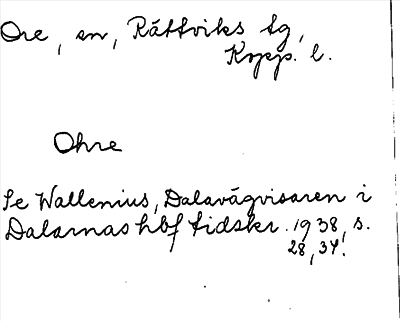 Ore, sn, Rättviks tg,
Kopp. l.
Ohre
Se Wallenius, Dalavägvisaren i
Dalarnas hbf tidskr. 1938, s.
28, 34.